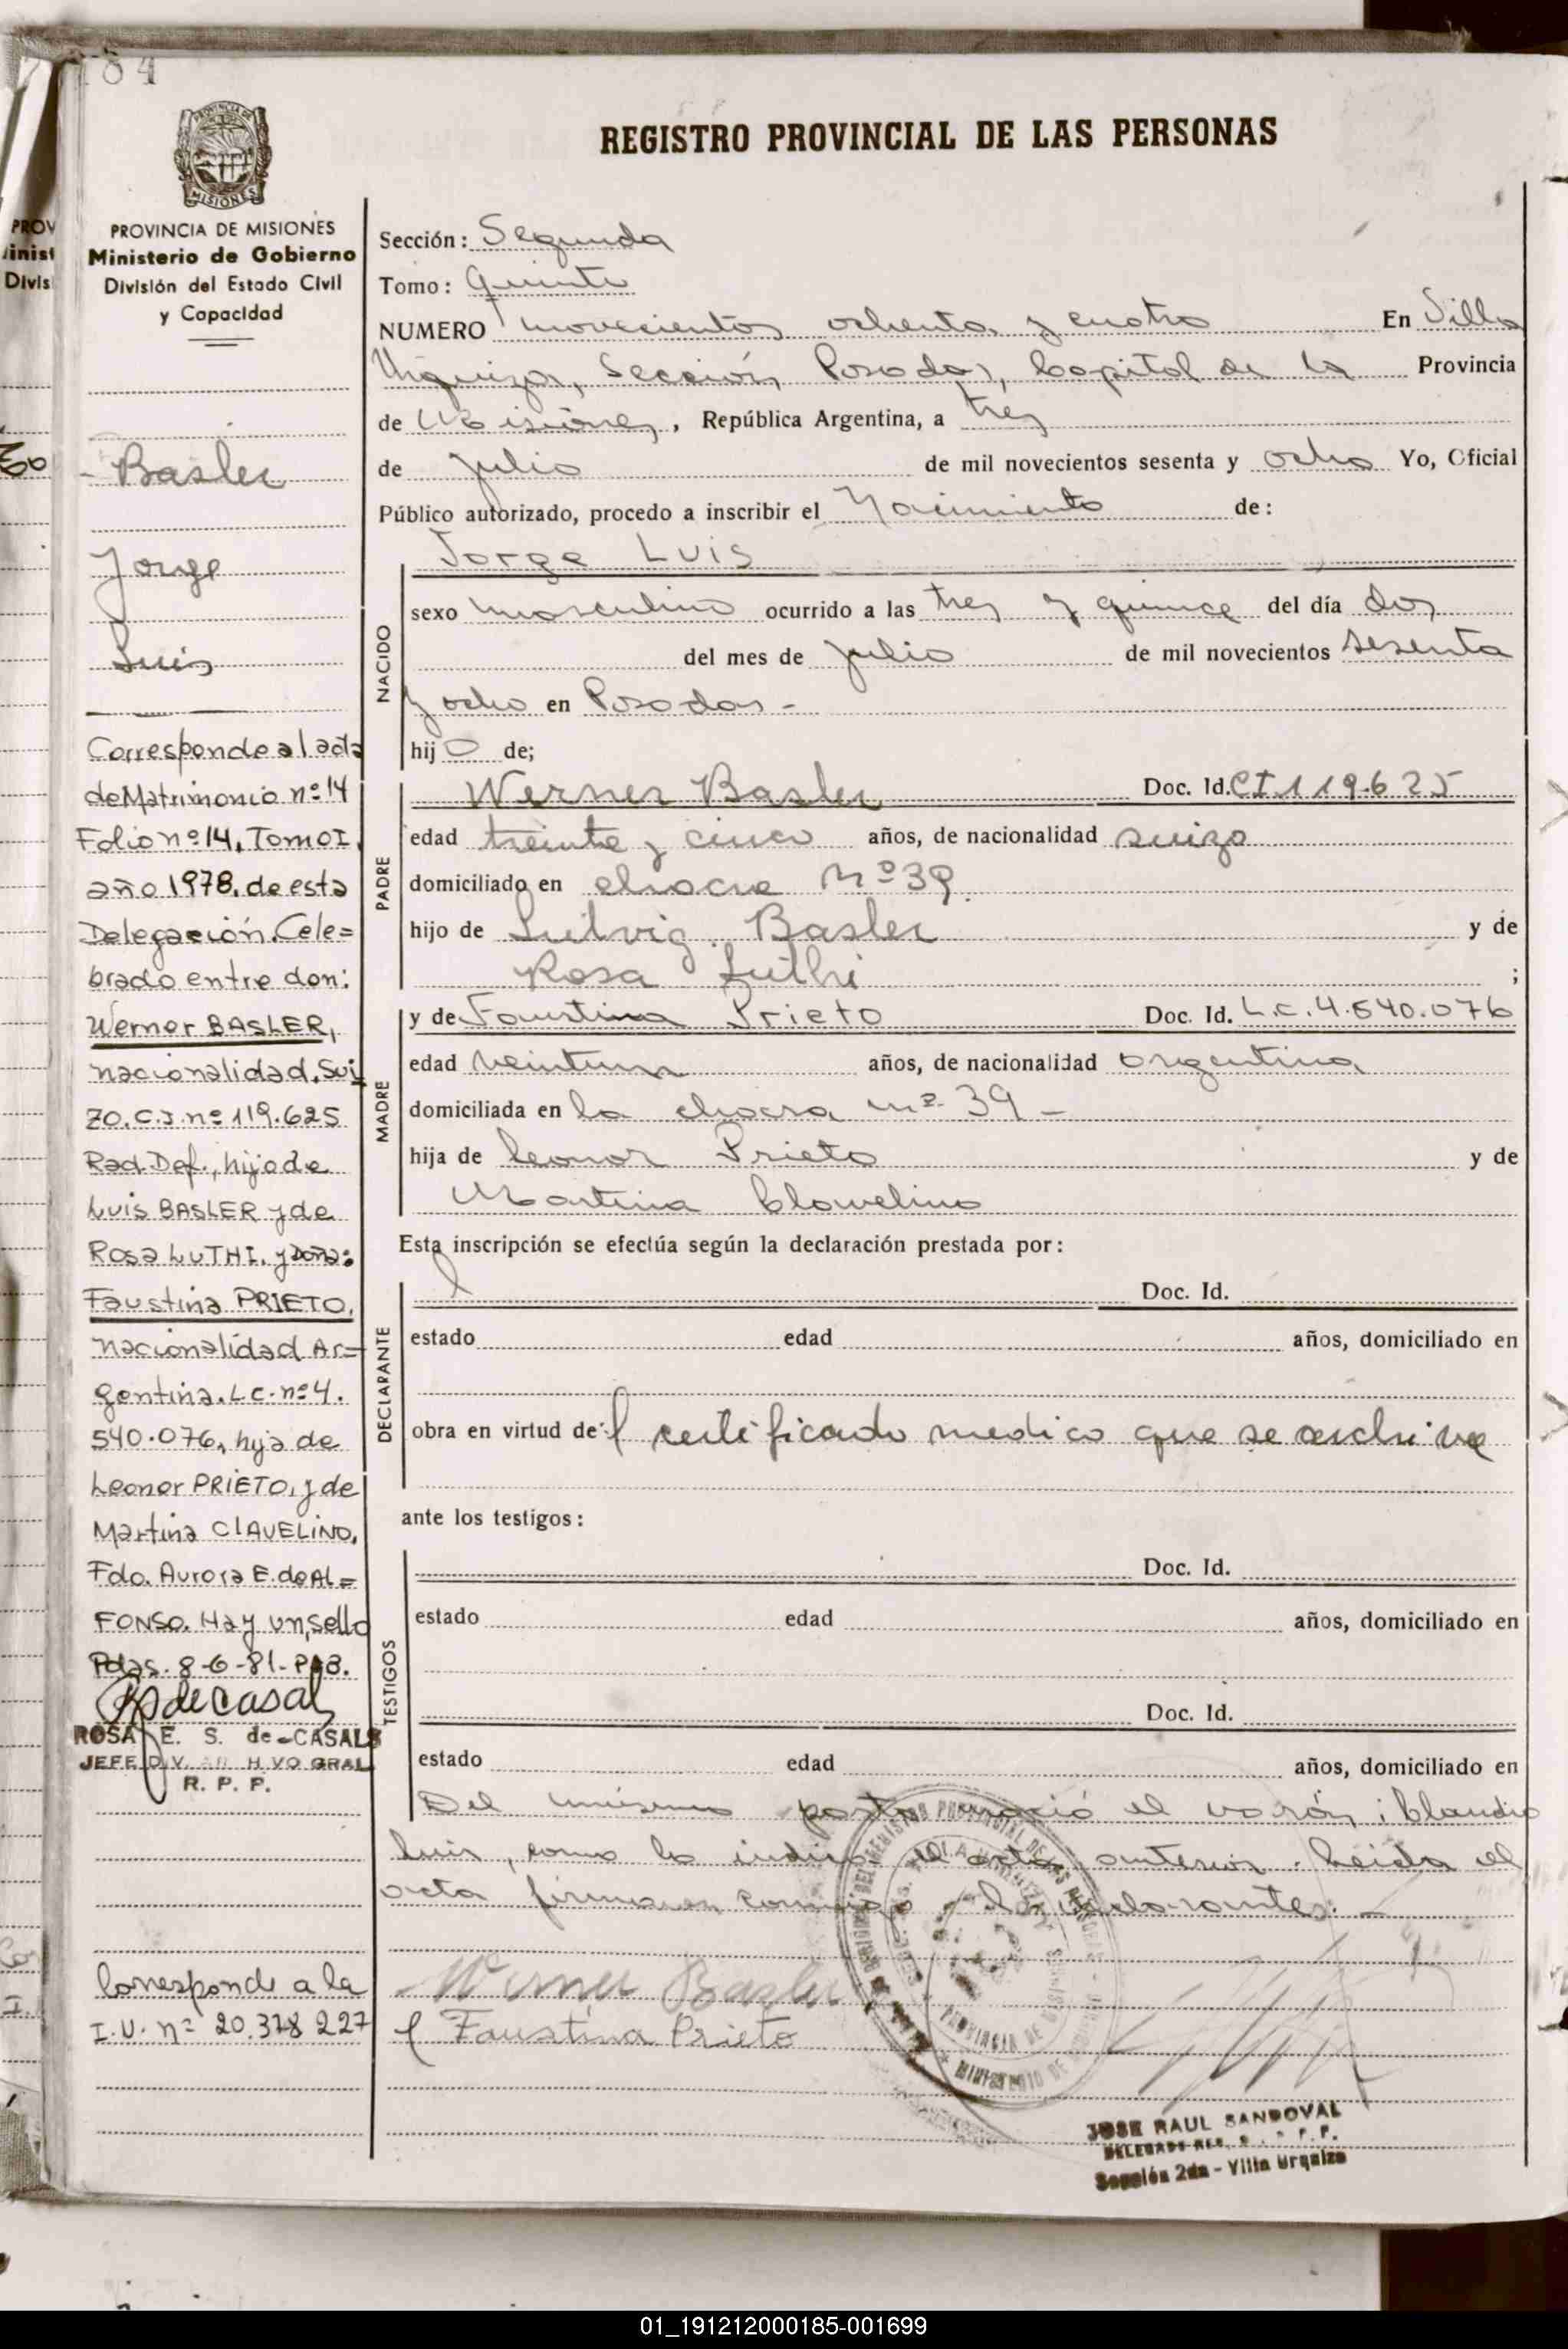 84
REGISTRO PROVINCIAL DE LAS PERSONAS
PROVINCIA DE MISIONES
Ministerio de Gobierno
División del Estado Civil
y Capacidad
Basler
Jorge
Luis
Corresponde al acta
de Matrimonio nº 14
Folio nº 14, Tomo I,
año 1978, de esta
Delegación. Cele=
brado entre don:
Werner BASLER,
nacionalidad, Sui
zo. C.I. nº 119.625
Rad. Def., hijo de
Luis BASLER y de
Rosa LUTHI. y Doña:
Faustina PRIETO,
nacionalidad Ar=
gentina. L.C. nº 4.
540.076, hija de
Leonor PRIETO, y de
Martina CLAVELINO,
Fdo. Aurora E. de Al=
FONSO. Hay un, sello
Pdas. 8-6-81-
de Casals
ROSA E. S. de CASALS
JEFE DIV. HIVO GRAL
R. P. P.
Corresponde a la
I.U. nº 20.378 227
Sección: Segunda
Tomo: Quinto
NUMERO novecientos ochenta y cuatro En Villa
Urquiza, Sección Posadas, Capital de la Provincia
de Misiones, República Argentina, a tres
de julio de mil novecientos sesenta y ocho Yo, Oficial
Público autorizado, procedo a inscribir el Nacimiento de:
Jorge LUIS
NACIDO
sexo masculino ocurrido a las tres y quince del día dos
del mes de julio de mil novecientos sesenta
y ocho en Posadas -
hijo de;
PADRE
Werner Basler Doc. Id. CI 119.625
edad treinta y cinco años, de nacionalidad suizo
domiciliado en chacra Nº 39.
hijo de Ludvig Basler y de
Rosa Luthi ;
MADRE
y de Faustina Prieto Doc. Id. L.C. 4.540.076
edad veintiun años, de nacionalidad argentina
domiciliada en la chacra nº 39 -
hija de Leonor Prieto y de
Martina Clavelino
Esta inscripción se efectúa según la declaración prestada por:
DECLARANTE
Doc. Id.
estado edad años, domiciliado en
obra en virtud del certificado medico que se archiva
ante los testigos:
TESTIGOS
Doc. Id.
estado edad años, domiciliado en
Doc. Id.
estado edad años, domiciliado en
Del mismo parto nació el varón: Claudio
Luis, como lo indica el acta anterior. Leida el
acta firman conmigo los declarantes. -
Werner Basler
Faustina Prieto
JOSE RAUL SANDOVAL
Sección 2da - Villa Urquiza
01_191212000185-001699